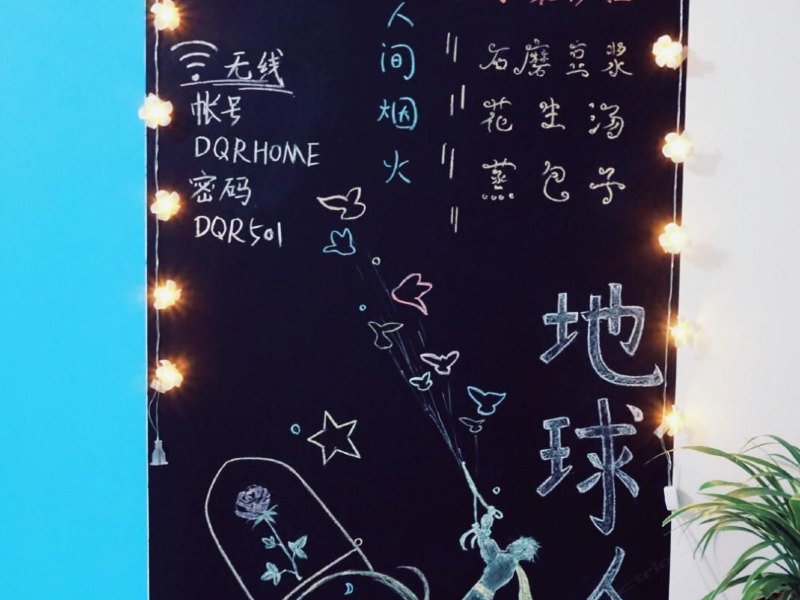 无线
帐号
DQRHOME
密码
DQR501
人间烟火
石磨豆浆
花生汤
蒸包子
地球人